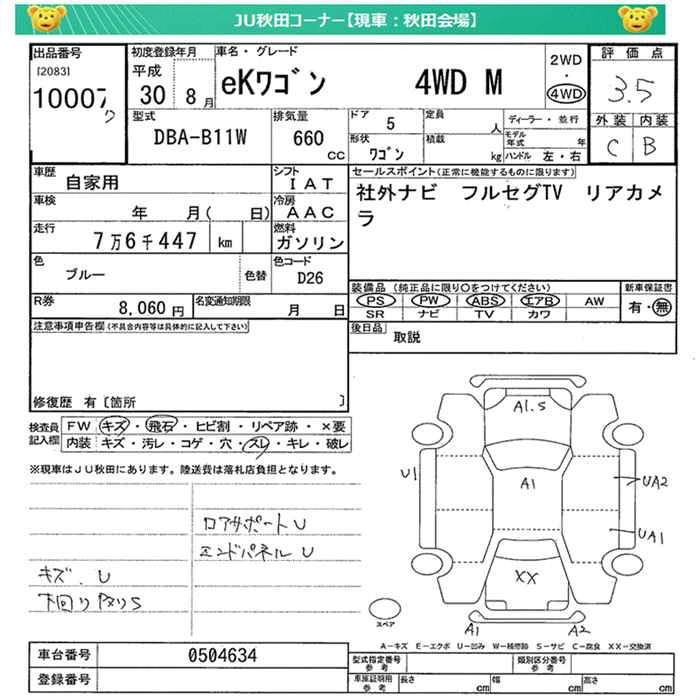 JU秋田コーナー【現車：秋田会場】
出品番号
[2083]
10007
初度登録年月
平成
30 8月
車名・グレード
eKワゴン 4WD M
2WD
・
4WD
評価点
3.5
外装 内装
C B
型式
DBA-B11W
排気量
660
CC
ドア
5
形状
ワゴン
定員
人
積載
kg
ディーラー・並行
モデル年式 年
ハンドル 左・右
車歴
自家用
シフト
IAT
車検
年 月( 日)
冷房
AAC
走行
7万6千447 km
燃料
ガソリン
色
ブルー
色替
色コード
D26
R券
8,060円
名変通知期限
月 日
セールスポイント(正常に機能するものに限ります)
社外ナビ フルセグTV リアカメ
ラ
装備品 (純正品に限り〇をつけてください)
PS PW ABS エアB AW
SR ナビ TV カワ
新車保証書
有・無
後日品
取説
注意事項申告欄(不具合内容等は具体的に記入して下さい)
修復歴 有〔箇所 〕
検査員
記入欄
FW キズ・飛石・ヒビ割・リペア跡・×要
内装 キズ・汚レ・コゲ・穴・スレ・キレ・破レ
※現車はJU秋田にあります。陸送費は落札店負担となります。
ロアサポートU
エンドパネルU
キズ.U
下回りサビS
A1.5
A1
U1
UA2
UA1
XX
A1
A2
スペア
A-キズ E-エクボ U-凹み W-補修跡 S-サビ C-腐食 XX-交換済
車台番号
0504634
登録番号
型式指定番号
参考
類別区分番号
参考
車庫証明用
参考
長さ cm
幅 cm
高さ cm